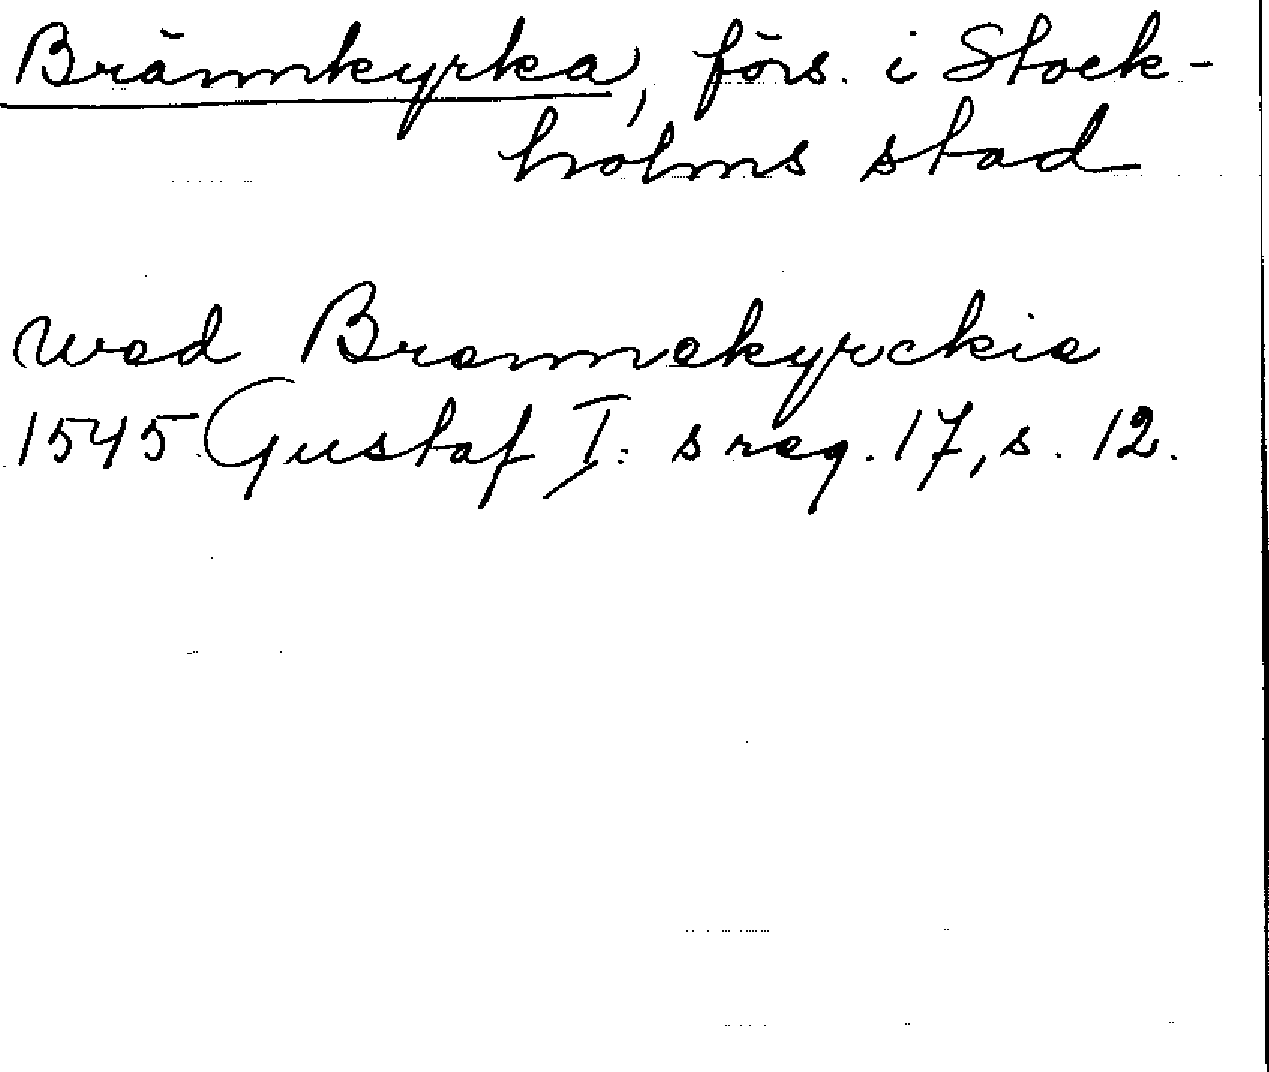 Brännkyrka, förs. i Stock-
holms stad
wed Brennekyrckie
1545 Gustaf I:s reg. 17, s. 12.